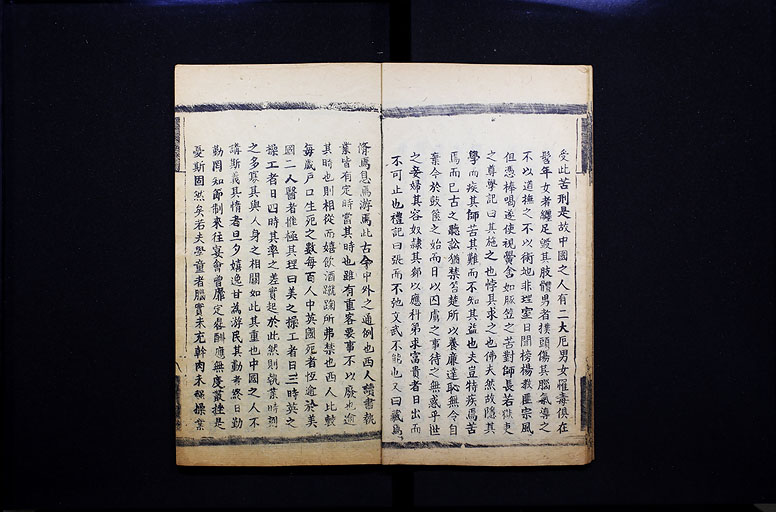 受此苦刑是故中國之人有二大厄男女罹毒俱在
髫年女者纏足毀其肢體男者撲頭傷其腦氣導之
不以道撫之不以術地非理室日聞榜楊教匪宗風
但憑棒喝遂使視黌舍如豚笠之苦對師長若獄吏
之尊學記曰其施之也悖其求之也佛夫然故隱其
學而疾其師苦其難而不知其益也夫豈特疾焉苦
焉而已古之聽訟猶禁笞楚所以養廉達恥無令自
棄今於鼓篋之始而日以囚虜之事待之無惑乎世
之妾婦其容奴隸其節以應科第求富貴者日出而
不可止也禮記曰張而不弛文武不能也又曰藏焉
脩焉息焉游焉此古今中外之通例也西人讀書執
業皆有定時當其時也雖有重客要事不以廢也逾
其時也則相從而嬉飲酒蹴踘所弗禁也西人比較
每歲戶口生死之數每百人中英國死者恆逾於美
國二人醫者推極其理曰美之操工者日三時英之
操工者日四時其率之差實起於此然則執業時刻
之多寡其與人身之相關如此其重也中國之人不
講斯義其惰者旦夕嬉逸甘為游民其勤者終日勤
動罔知節制來往宴會曾靡定晷酬應無度叢挫是
憂斯固然矣若夫學童者腦實未充幹肉未強操業